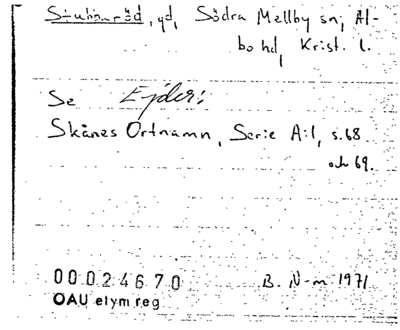 Stubbaröd, gd, Södra Mellby sn, Al-
bo hd, Krist. l.
Se Ejder:
Skånes Ortnamn, Serie A:1, s. 68
och 69.
00024670 B. N-m 1971
OAU etym reg